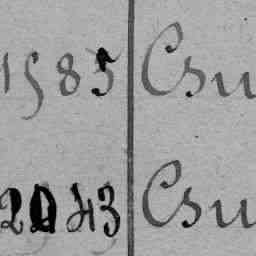 1985 Csu
2043 Csu